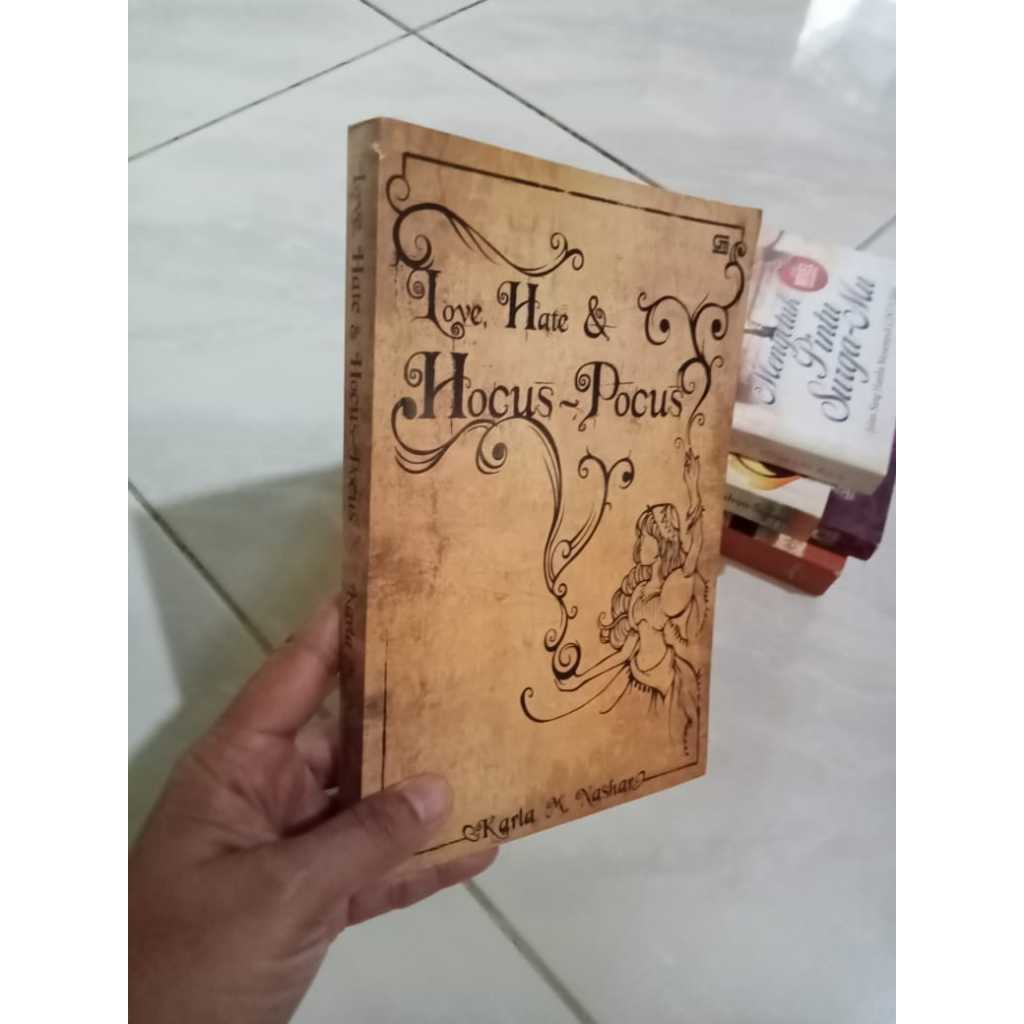 Love, Hate &
Hocus-Pocus
Karla M. Nashar
Love, Hate & Hocus-Pocus
Karla
Mengetuk
Pintu
Surga-Mu